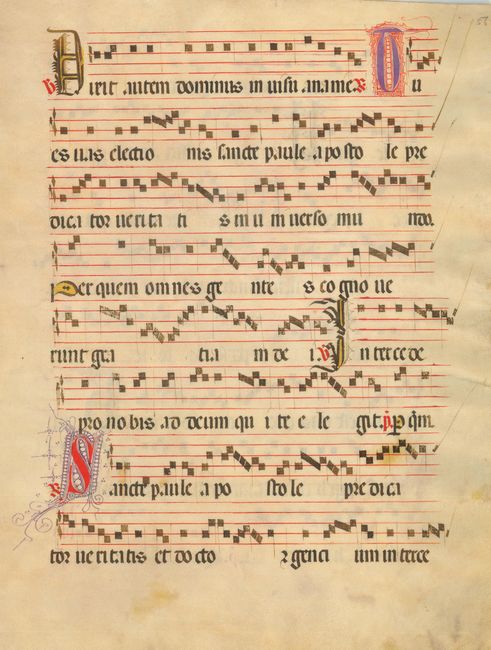 ℣ Dixit autem dominus in visu ananie ℟ Tu
es vas electio nis sancte paule aposto le pre
dica tor verita ti s in universo mu ndo.
Per quem omnes ge nte s cogno ve
runt gra tia m de i. ℣ Intercede
pro nobis ad deum qu i te e le git. p̄. P q̄m.
℟ Sancte paule apo sto le predica
tor veritatis et docto r genci um interce